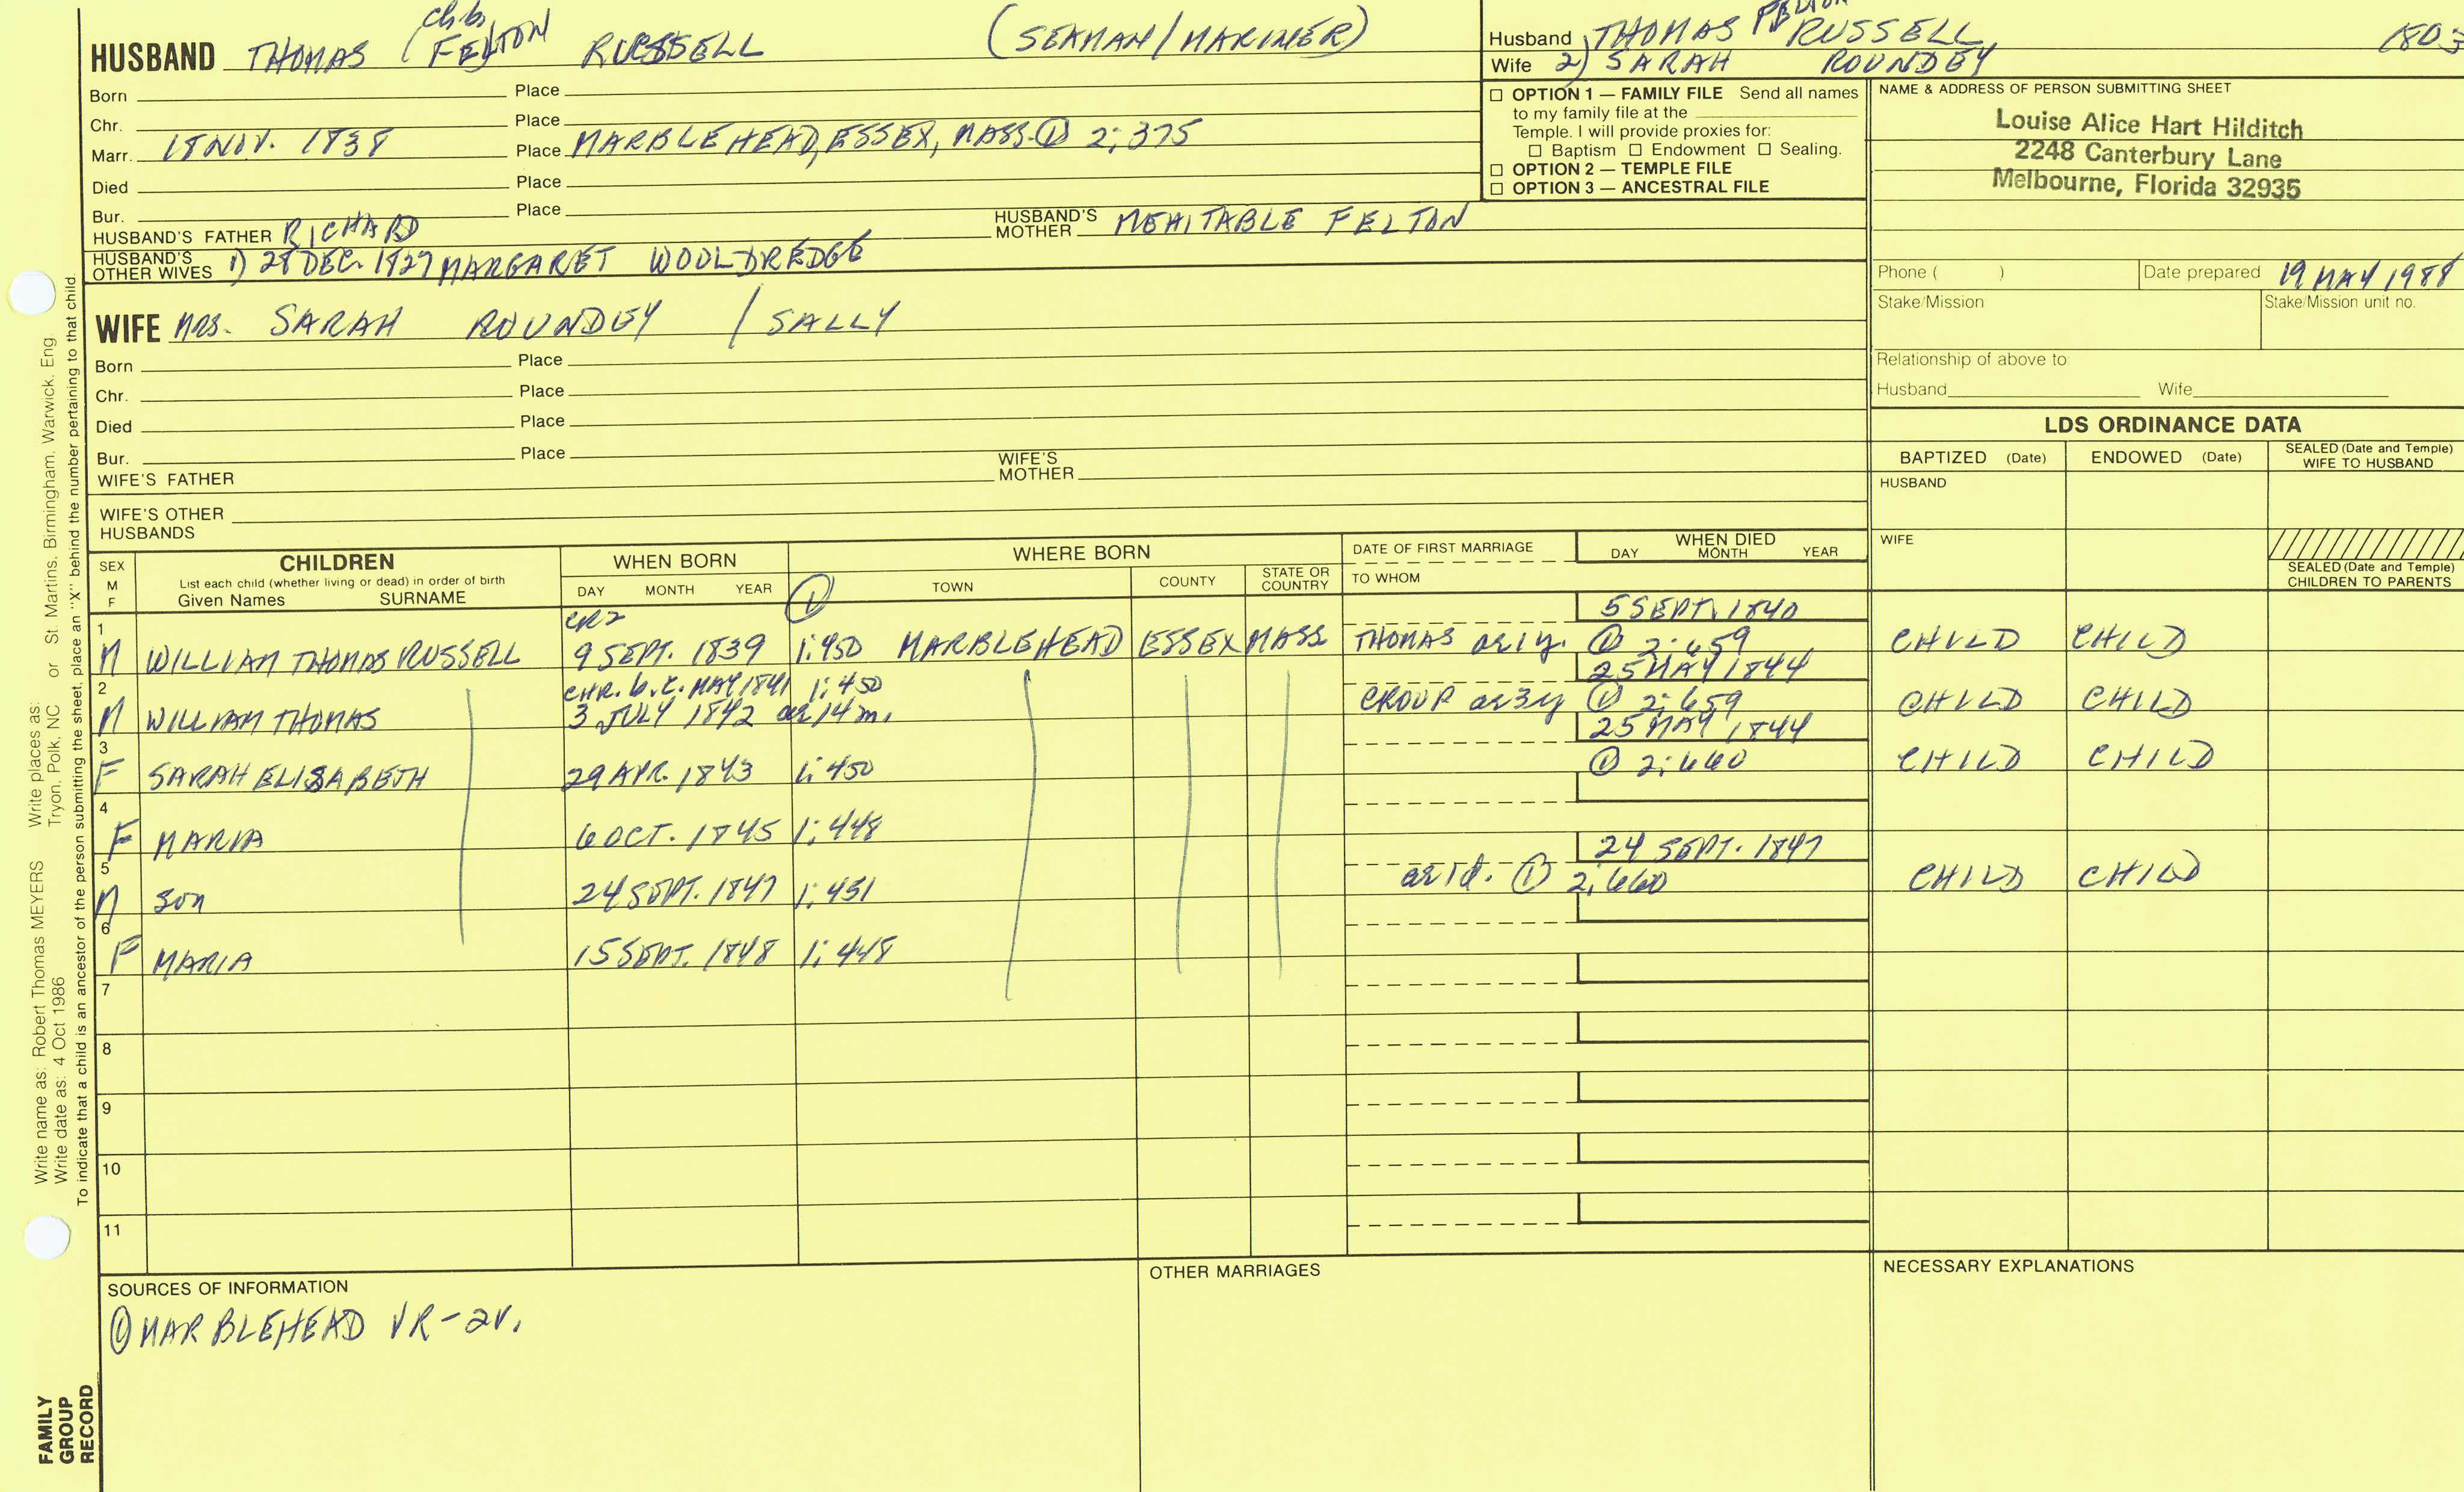 HUSBAND THOMAS ( FELTON RUSSELL (SEAMAN/MARINER)
ch.b.
Born Place
Chr. Place
Marr. 18 NOV. 1838 Place MARBLEHEAD, ESSEX, MASS. ① 2:375
Died Place
Bur. Place
HUSBAND'S FATHER RICHARD HUSBAND'S MOTHER MEHITABLE FELTON
HUSBAND'S OTHER WIVES 1) 28 DEC. 1827 MARGARET WOOLDREDGE
WIFE MRS. SARAH ROUNDEY / SALLY
Born Place
Chr. Place
Died Place
Bur. Place
WIFE'S FATHER WIFE'S MOTHER
WIFE'S OTHER HUSBANDS
Husband THOMAS FELTON RUSSELL 1803
Wife 2) SARAH ROUNDEY
☐ OPTION 1 — FAMILY FILE Send all names
to my family file at the
Temple. I will provide proxies for:
☐ Baptism ☐ Endowment ☐ Sealing.
☐ OPTION 2 — TEMPLE FILE
☐ OPTION 3 — ANCESTRAL FILE
NAME & ADDRESS OF PERSON SUBMITTING SHEET
Louise Alice Hart Hilditch
2248 Canterbury Lane
Melbourne, Florida 32935
Phone ( ) Date prepared 19 MAY 1988
Stake/Mission Stake/Mission unit no.
Relationship of above to
Husband Wife
LDS ORDINANCE DATA
BAPTIZED (Date) ENDOWED (Date) SEALED (Date and Temple) WIFE TO HUSBAND
HUSBAND
WIFE
SEALED (Date and Temple) CHILDREN TO PARENTS
SEX M F
CHILDREN
List each child (whether living or dead) in order of birth
Given Names SURNAME
WHEN BORN
DAY MONTH YEAR ①
WHERE BORN
TOWN COUNTY STATE OR COUNTRY
DATE OF FIRST MARRIAGE
TO WHOM
WHEN DIED
DAY MONTH YEAR
CR2 5 SEPT. 1840
1 M WILLIAM THOMAS RUSSELL 9 SEPT. 1839 1:450 MARBLEHEAD ESSEX MASS THOMAS ae 1 y. ① 2:659 CHILD CHILD
CHR. b.c. MAY 1841 1:450 25 MAY 1844
2 M WILLIAM THOMAS 3 JULY 1842 ae 14 m. CROUP ae 3 y ① 2:659 CHILD CHILD
25 MAY 1844
3 F SARAH ELISABETH 29 APR. 1843 1:450 ① 2:660 CHILD CHILD
4 F MARIA 6 OCT. 1845 1:448
24 SEPT. 1847
5 M son 24 SEPT. 1847 1:451 ae 1 d. ① 2:660 CHILD CHILD
6 F MARIA 15 SEPT. 1848 1:448
7
8
9
10
11
SOURCES OF INFORMATION
① MARBLEHEAD VR-2V.
OTHER MARRIAGES
NECESSARY EXPLANATIONS
Write name as: Robert Thomas MEYERS Write places as: Tryon, Polk, NC or St. Martins, Birmingham, Warwick, Eng.
Write date as: 4 Oct 1986
To indicate that a child is an ancestor of the person submitting the sheet, place an "X" behind the number pertaining to that child.
FAMILY
GROUP
RECORD